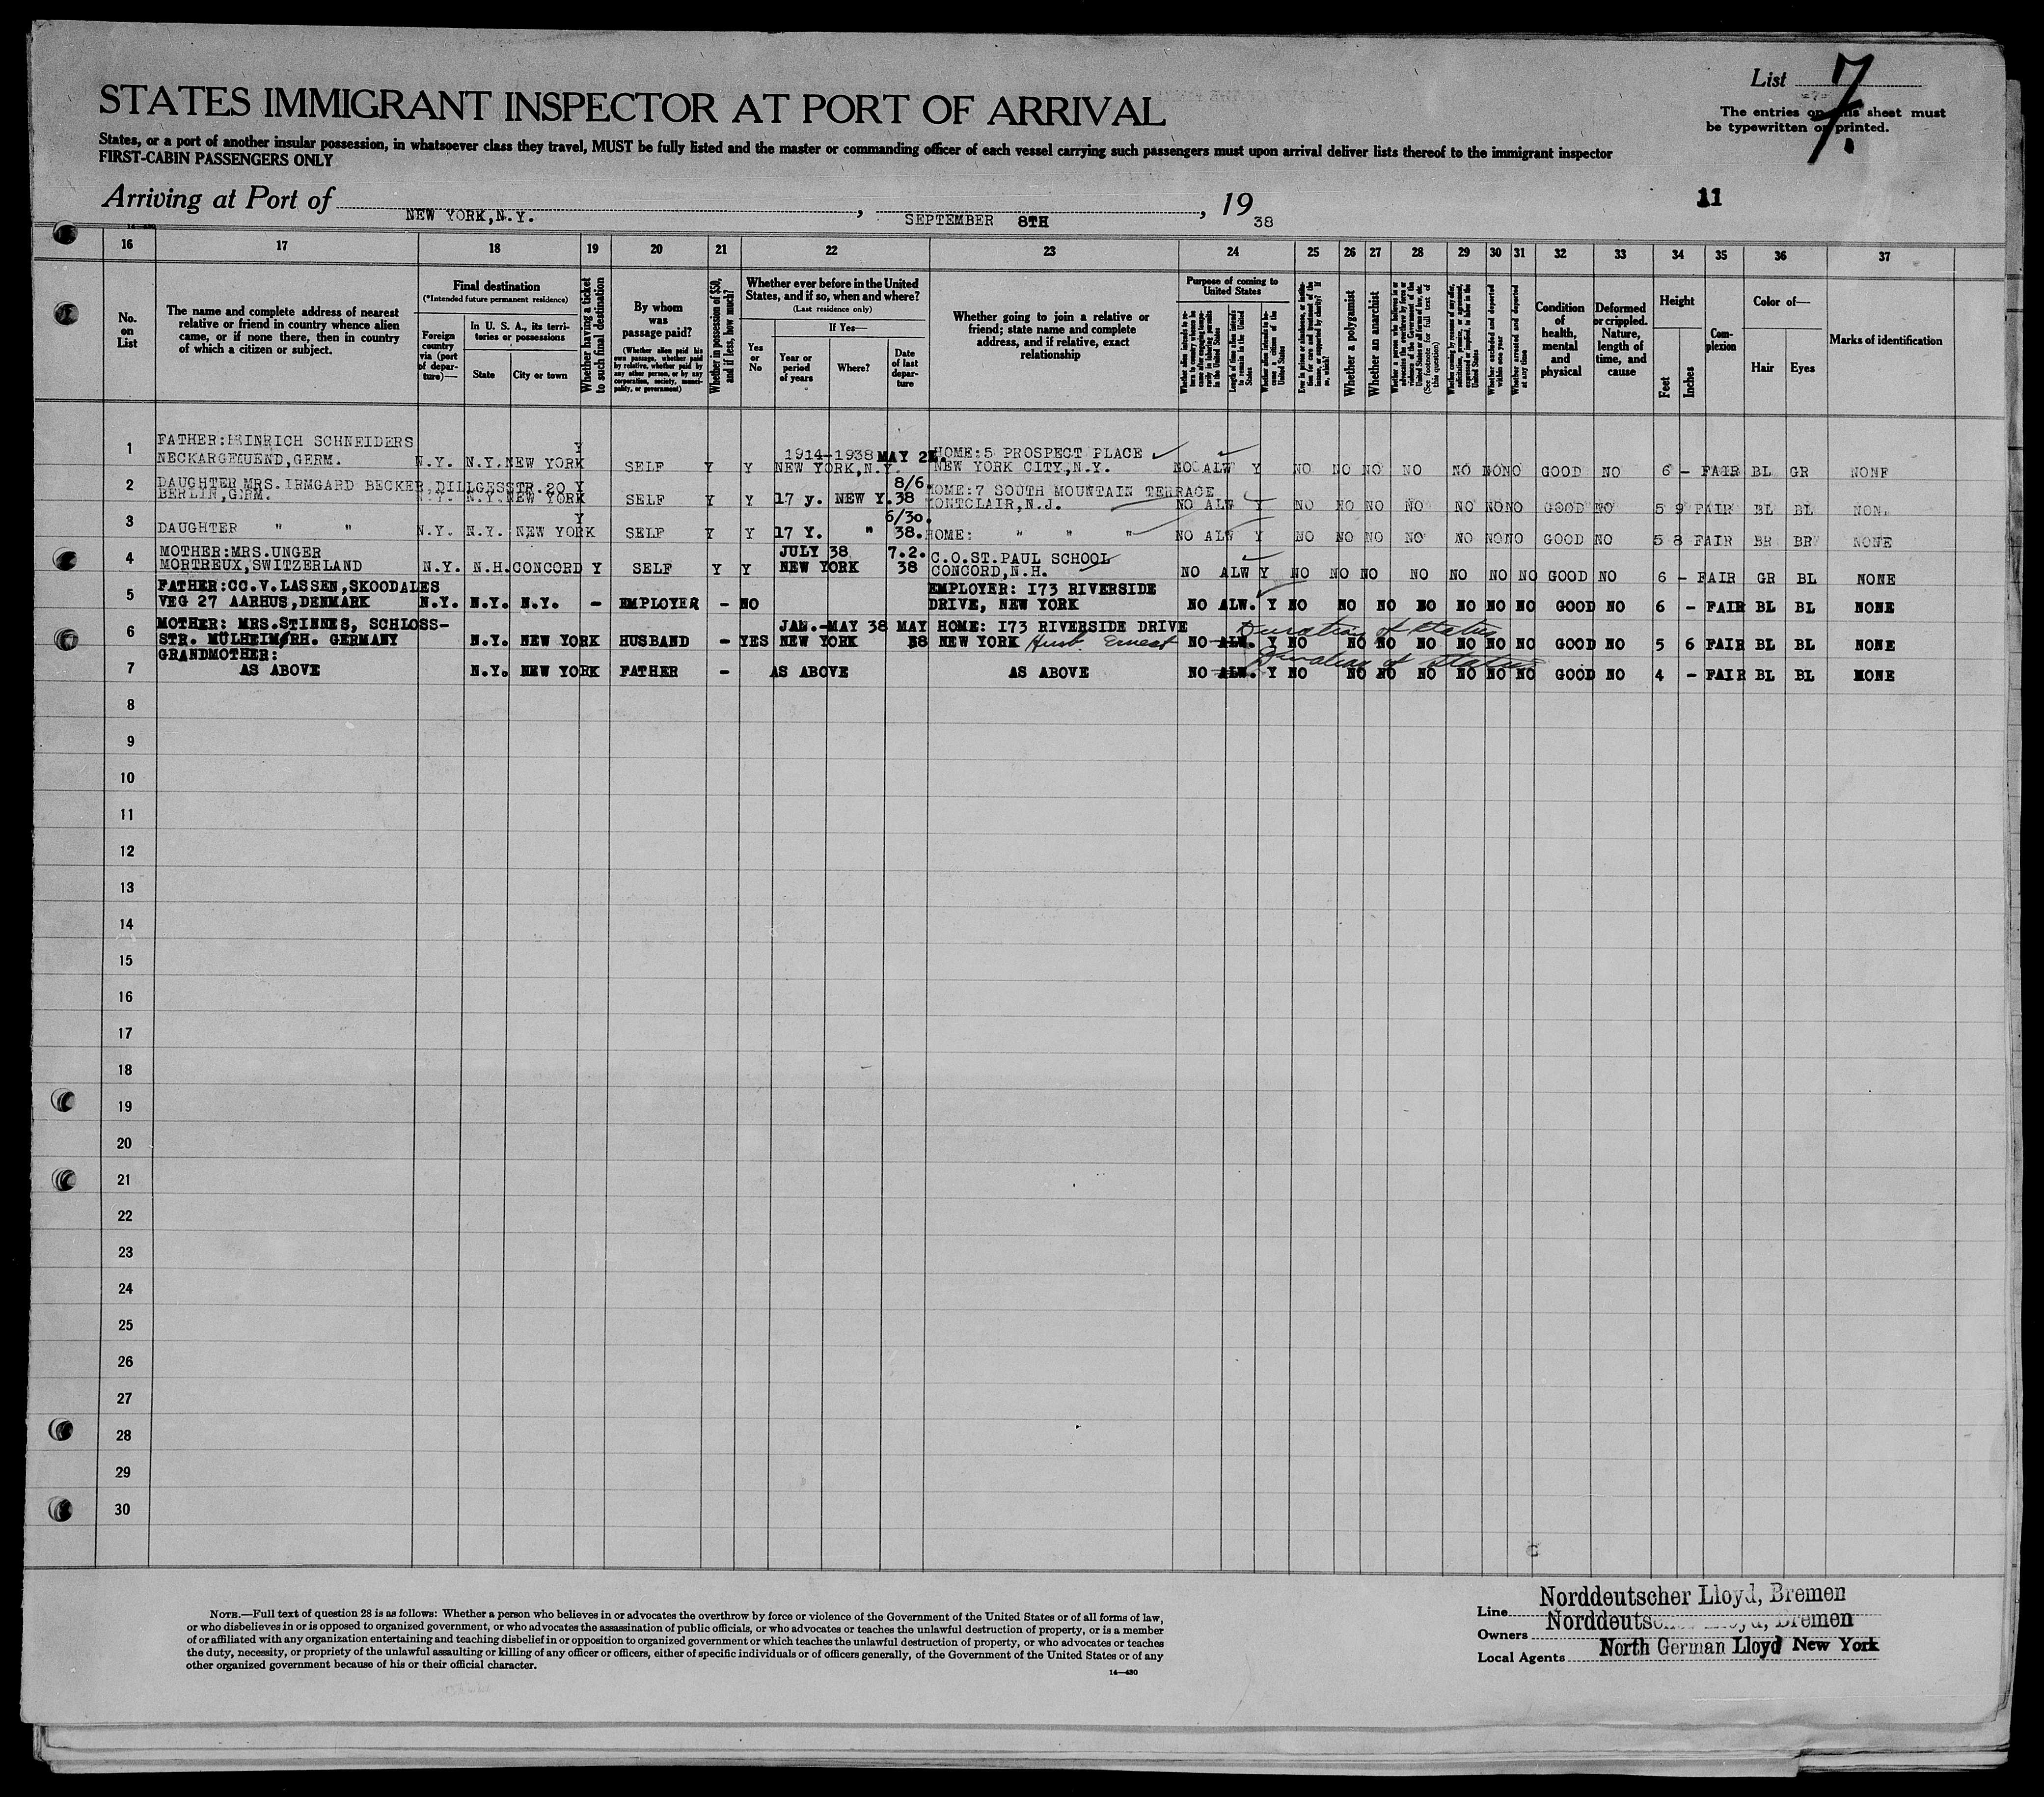 List 7.
-7-
The entries on this sheet must
be typewritten or printed.
STATES IMMIGRANT INSPECTOR AT PORT OF ARRIVAL
States, or a port of another insular possession, in whatsoever class they travel, MUST be fully listed and the master or commanding officer of each vessel carrying such passengers must upon arrival deliver lists thereof to the immigrant inspector
FIRST-CABIN PASSENGERS ONLY
11
Arriving at Port of NEW YORK, N.Y., SEPTEMBER 8TH, 19 38
16 17 18 19 20 21 22 23 24 25 26 27 28 29 30 31 32 33 34 35 36 37
No. on List
The name and complete address of nearest relative or friend in country whence alien came, or if none there, then in country of which a citizen or subject.
Final destination
(*Intended future permanent residence)
Foreign country via (port of departure)—
In U. S. A., its territories or possessions
State
City or town
Whether having a ticket to such final destination
By whom was passage paid?
(Whether alien paid his own passage, whether paid by relative, whether paid by any other person, or by any corporation, society, municipality, or government)
Whether in possession of $50, and if less, how much?
Whether ever before in the United States, and if so, when and where?
(Last residence only)
Yes or No
If Yes—
Year or period of years
Where?
Date of last departure
Whether going to join a relative or friend; state name and complete address, and if relative, exact relationship
Purpose of coming to United States
Whether alien intends to return to country whence he came after engaging temporarily in laboring pursuits in the United States
Length of time alien intends to remain in the United States
Whether alien intends to become a citizen of the United States
Ever in prison or almshouse, or institution for care and treatment of the insane, or supported by charity? If so, which?
Whether a polygamist
Whether an anarchist
Whether a person who believes in or advocates the overthrow by force or violence of the Government of the United States or all forms of law, etc. (See footnote for full text of this question)
Whether coming by reason of any offer, solicitation, promise, or agreement, expressed or implied, to labor in the United States
Whether excluded and deported within one year
Whether arrested and deported at any time
Condition of health, mental and physical
Deformed or crippled. Nature, length of time, and cause
Height
Feet
Inches
Complexion
Color of—
Hair
Eyes
Marks of identification
1 FATHER: HEINRICH SCHNEIDERS
NECKARGEMUEND, GERM. N.Y. N.Y. NEW YORK Y SELF Y Y 1914-1938 NEW YORK, N.Y. MAY 2 HOME: 5 PROSPECT PLACE NEW YORK CITY, N.Y. NO ALW Y NO NO NO NO NO NO NO GOOD NO 6 - FAIR BL GR NONE
2 DAUGHTER MRS. IRMGARD BECKER, DILLGESSTR. 20
BERLIN, GERM. N.Y. N.Y. NEW YORK Y SELF Y Y 17 y. NEW Y. 8/6 38 HOME: 7 SOUTH MOUNTAIN TERRACE MONTCLAIR, N.J. NO ALW Y NO NO NO NO NO NO NO GOOD NO 5 9 FAIR BL BL NONE
3 DAUGHTER " " N.Y. N.Y. NEW YORK Y SELF Y Y 17 Y. " 6/30. 38. HOME: " " " NO ALW Y NO NO NO NO NO NO NO GOOD NO 5 8 FAIR BR BR NONE
4 MOTHER: MRS. UNGER
MORTREUX, SWITZERLAND N.Y. N.H. CONCORD Y SELF Y Y JULY 38 NEW YORK 7.2. 38 C.O. ST. PAUL SCHOOL CONCORD, N.H. NO ALW Y NO NO NO NO NO NO NO GOOD NO 6 - FAIR GR BL NONE
5 FATHER: CC. V. LASSEN, SKOODALES
VEG 27 AARHUS, DENMARK N.Y. N.Y. N.Y. - EMPLOYER - NO EMPLOYER: I73 RIVERSIDE DRIVE, NEW YORK NO ALW. Y NO NO NO NO NO NO NO GOOD NO 6 - FAIR BL BL NONE
6 MOTHER: MRS. STINNES, SCHLOSS-
STR. MÜLHEIM/RH. GERMANY N.Y. NEW YORK HUSBAND - YES JAN.-MAY 38 NEW YORK MAY 38 HOME: I73 RIVERSIDE DRIVE NEW YORK Husb. Ernest NO ALW. Duration of Status Y NO NO NO NO NO NO NO GOOD NO 5 6 FAIR BL BL NONE
7 GRANDMOTHER:
AS ABOVE N.Y. NEW YORK FATHER - AS ABOVE AS ABOVE NO ALW. Duration of Status Y NO NO NO NO NO NO NO GOOD NO 4 - FAIR BL BL NONE
8
9
10
11
12
13
14
15
16
17
18
19
20
21
22
23
24
25
26
27
28
29
30
NOTE.—Full text of question 28 is as follows: Whether a person who believes in or advocates the overthrow by force or violence of the Government of the United States or of all forms of law,
or who disbelieves in or is opposed to organized government, or who advocates the assassination of public officials, or who advocates or teaches the unlawful destruction of property, or is a member
of or affiliated with any organization entertaining and teaching disbelief in or opposition to organized government or which teaches the unlawful destruction of property, or who advocates or teaches
the duty, necessity, or propriety of the unlawful assaulting or killing of any officer or officers, either of specific individuals or of officers generally, of the Government of the United States or of any
other organized government because of his or their official character.
14—430
Line Norddeutscher Lloyd, Bremen
Owners Norddeutscher Lloyd, Bremen
Local Agents North German Lloyd New York